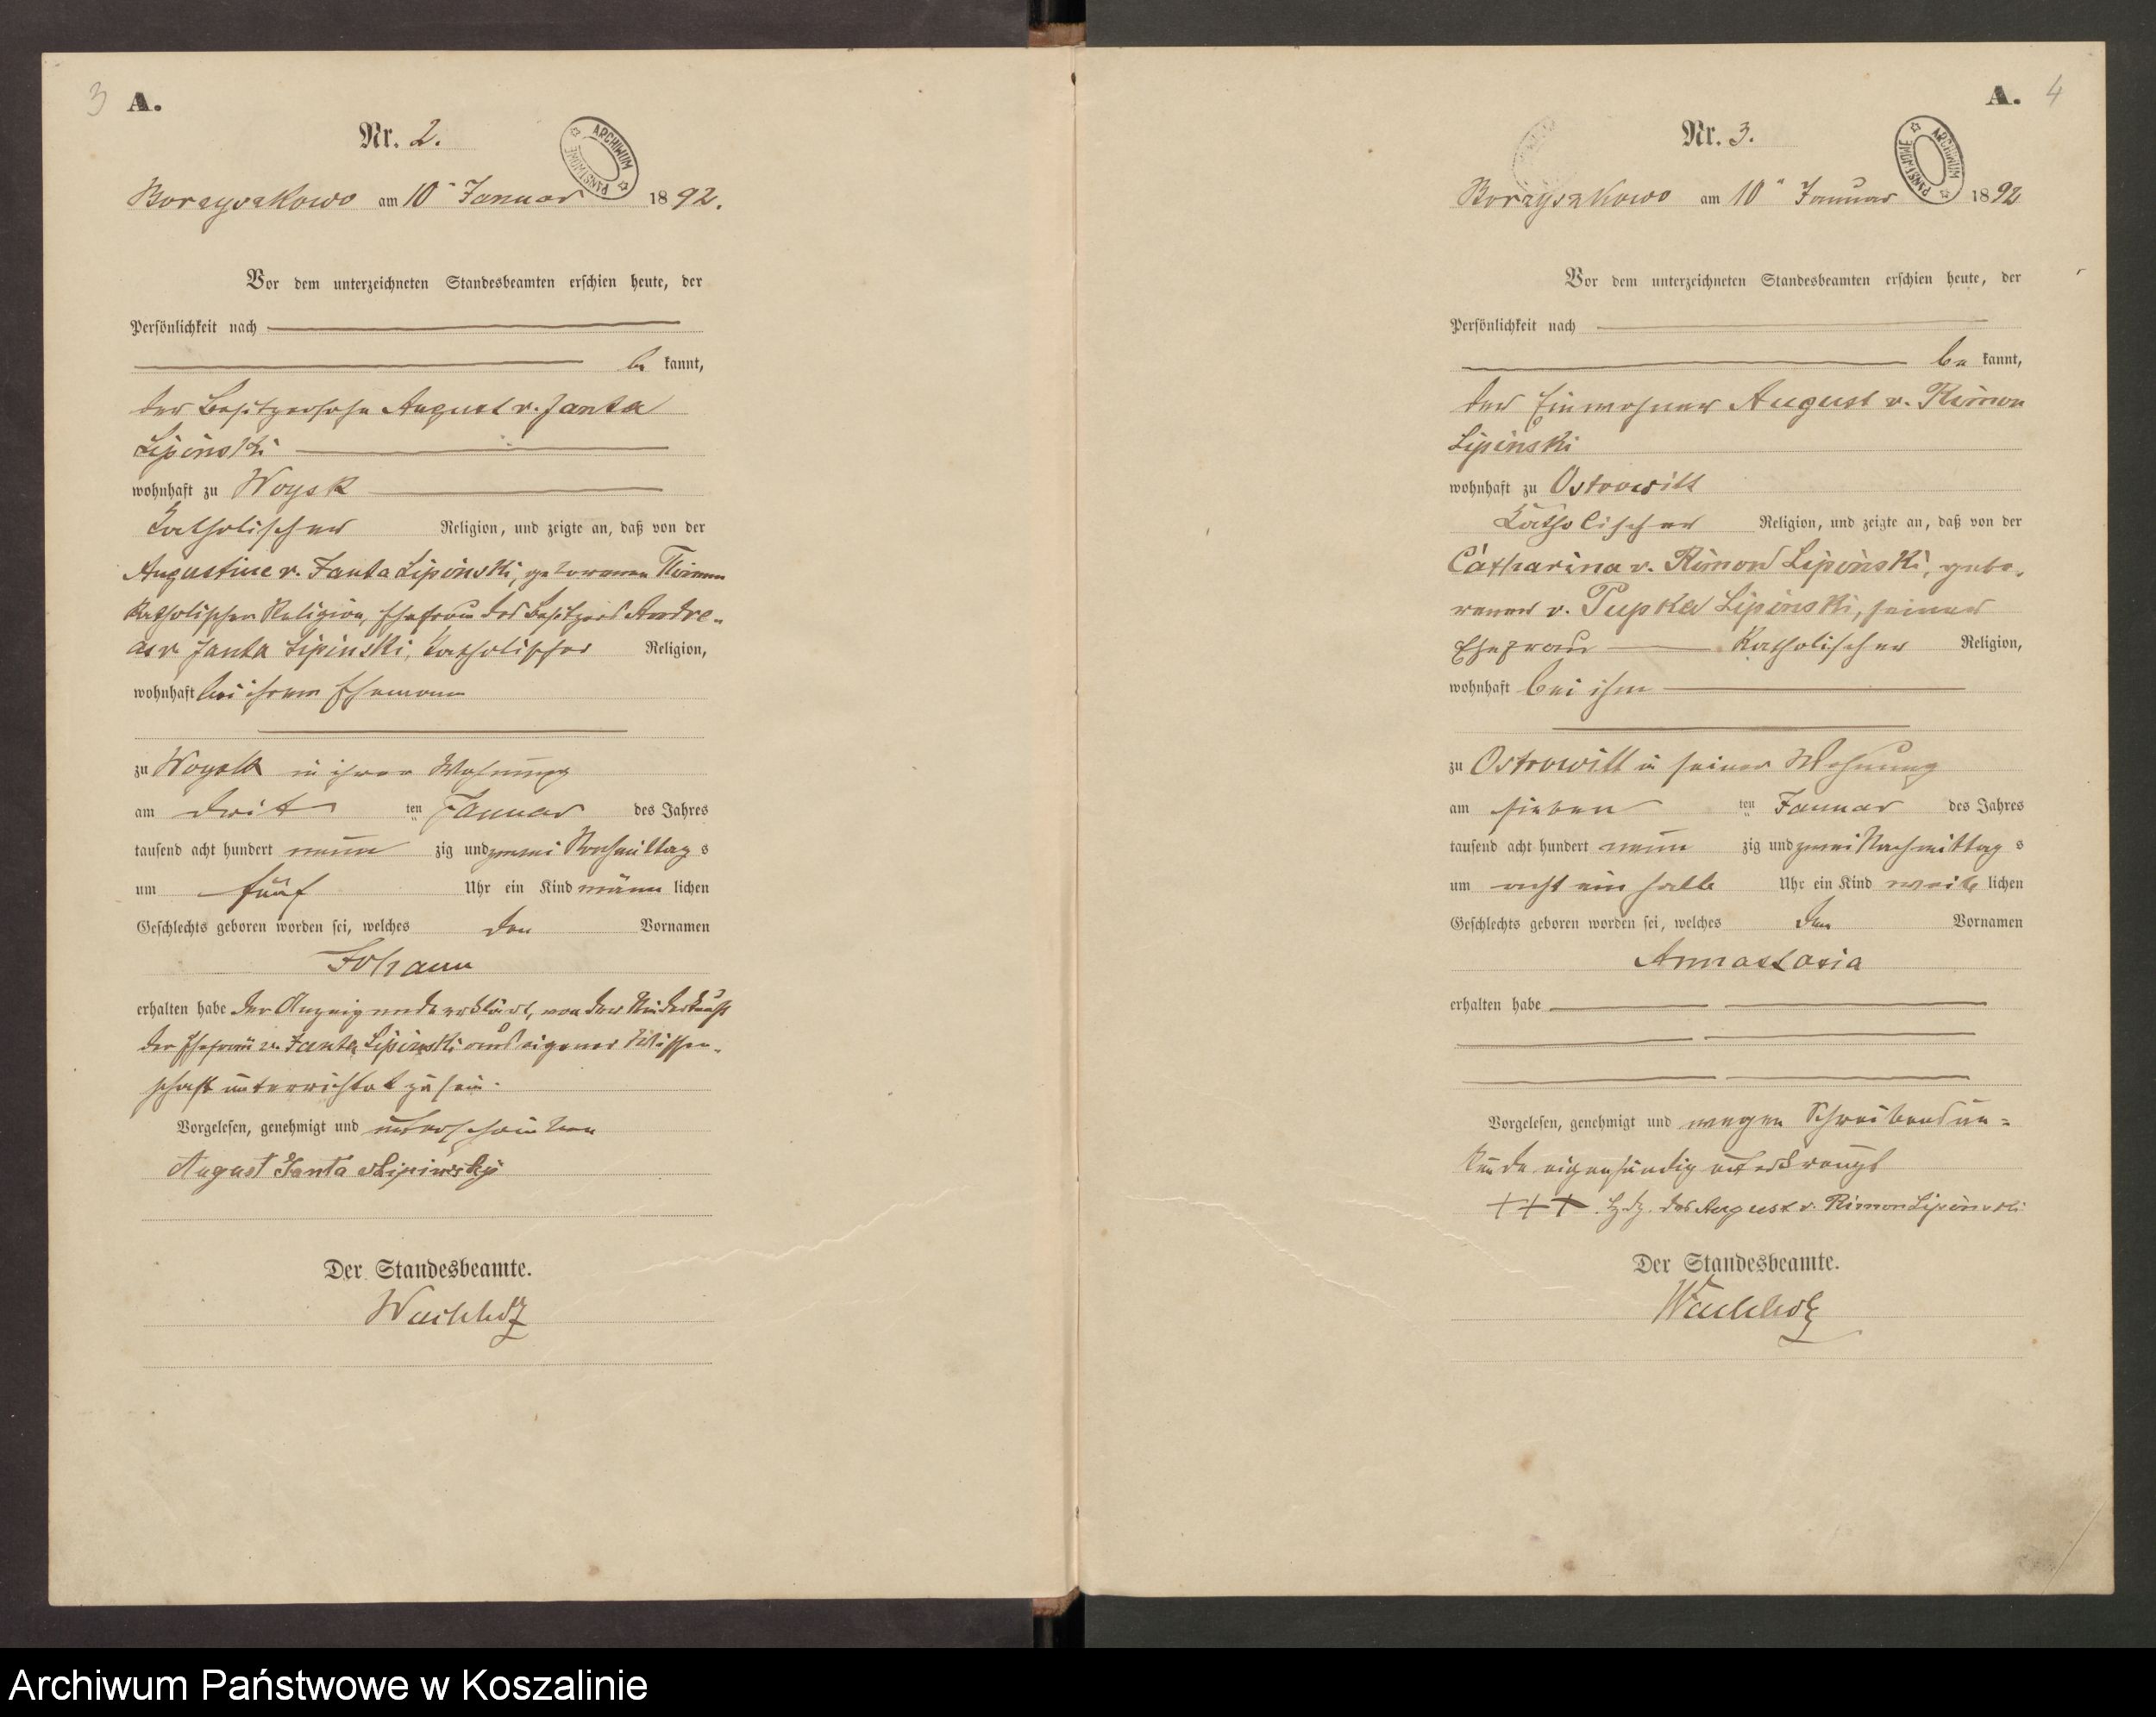 3 A.
Nr. 2.
ARCHIWUM PAŃSTWOWE
Borzyszkowo am 10ⁿ Januar 1892.
Vor dem unterzeichneten Standesbeamten erschien heute, der
Persönlichkeit nach
be kannt,
der Besitzersohn August v. Janta
Lipinski
wohnhaft zu Woysk
katholischer Religion, und zeigte an, daß von der
Augustine v. Janta Lipinski, geborenen
katholischer Religion, Ehefrau des Besitzers Andre-
as v. Janta Lipinski, katholischer Religion,
wohnhaft bei ihrem Ehemann
zu Woysk in ihrer Wohnung
am drit ten Januar des Jahres
tausend acht hundert neun zig und zwei Nachmittag s
um fünf Uhr ein Kind männ lichen
Geschlechts geboren worden sei, welches den Vornamen
Johann
erhalten habe der Anzeigende erklärt, von der Niederkunft
der Ehefrau v. Janta Lipinski aus eigener Wissen-
schaft unterrichtet zu sein.
Vorgelesen, genehmigt und unterschrieben
August Janta Lipinsky
Der Standesbeamte.
Wachholz
A. 4
Nr. 3.
ARCHIWUM PAŃSTWOWE
Borzyszkowo am 10ⁿ Januar 1892
Vor dem unterzeichneten Standesbeamten erschien heute, der
Persönlichkeit nach
be kannt,
der Einwohner August v. Rimon
Lipinski
wohnhaft zu Ostrowitt
katholischer Religion, und zeigte an, daß von der
Catharina v. Rimon Lipinski, gebo-
renen v. Pupka Lipinski, seiner
Ehefrau katholischer Religion,
wohnhaft bei ihm
zu Ostrowitt in seiner Wohnung
am sieben ten Januar des Jahres
tausend acht hundert neun zig und zwei Nachmittag s
um acht ein halb Uhr ein Kind weib lichen
Geschlechts geboren worden sei, welches den Vornamen
Annastasia
erhalten habe
Vorgelesen, genehmigt und wegen Schreibensun-
kunde eigenhändig unterkreuzt
+++ Hdz. des August v. Rimon Lipinski
Der Standesbeamte.
Wachholz
Archiwum Państwowe w Koszalinie